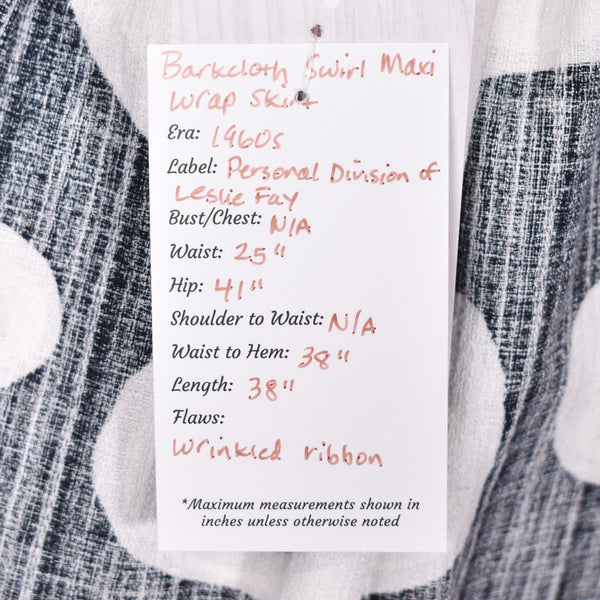 Barkcloth Swirl Maxi
Wrap Skirt
Era: 1960s
Label: Personal Division of
Leslie Fay
Bust/Chest: N/A
Waist: 25"
Hip: 41"
Shoulder to Waist: N/A
Waist to Hem: 38"
Length: 38"
Flaws:
Wrinkled ribbon
*Maximum measurements shown in
inches unless otherwise noted